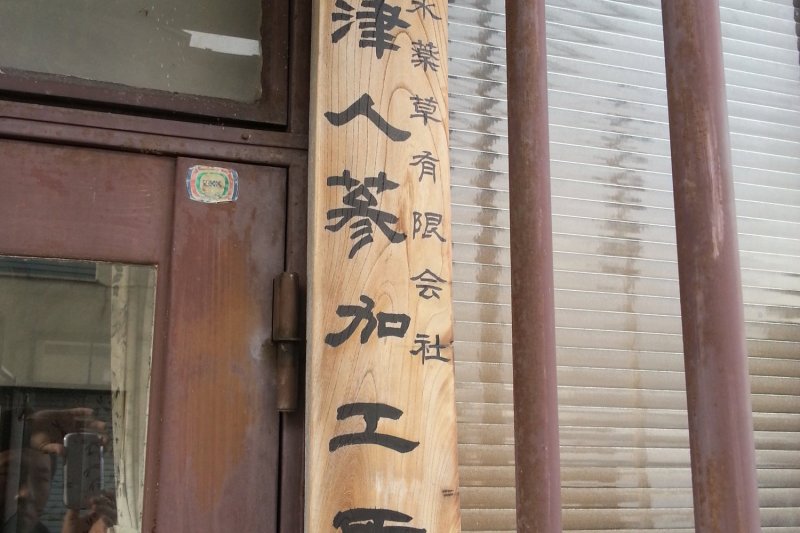 水薬草有限会社
津人蔘加工